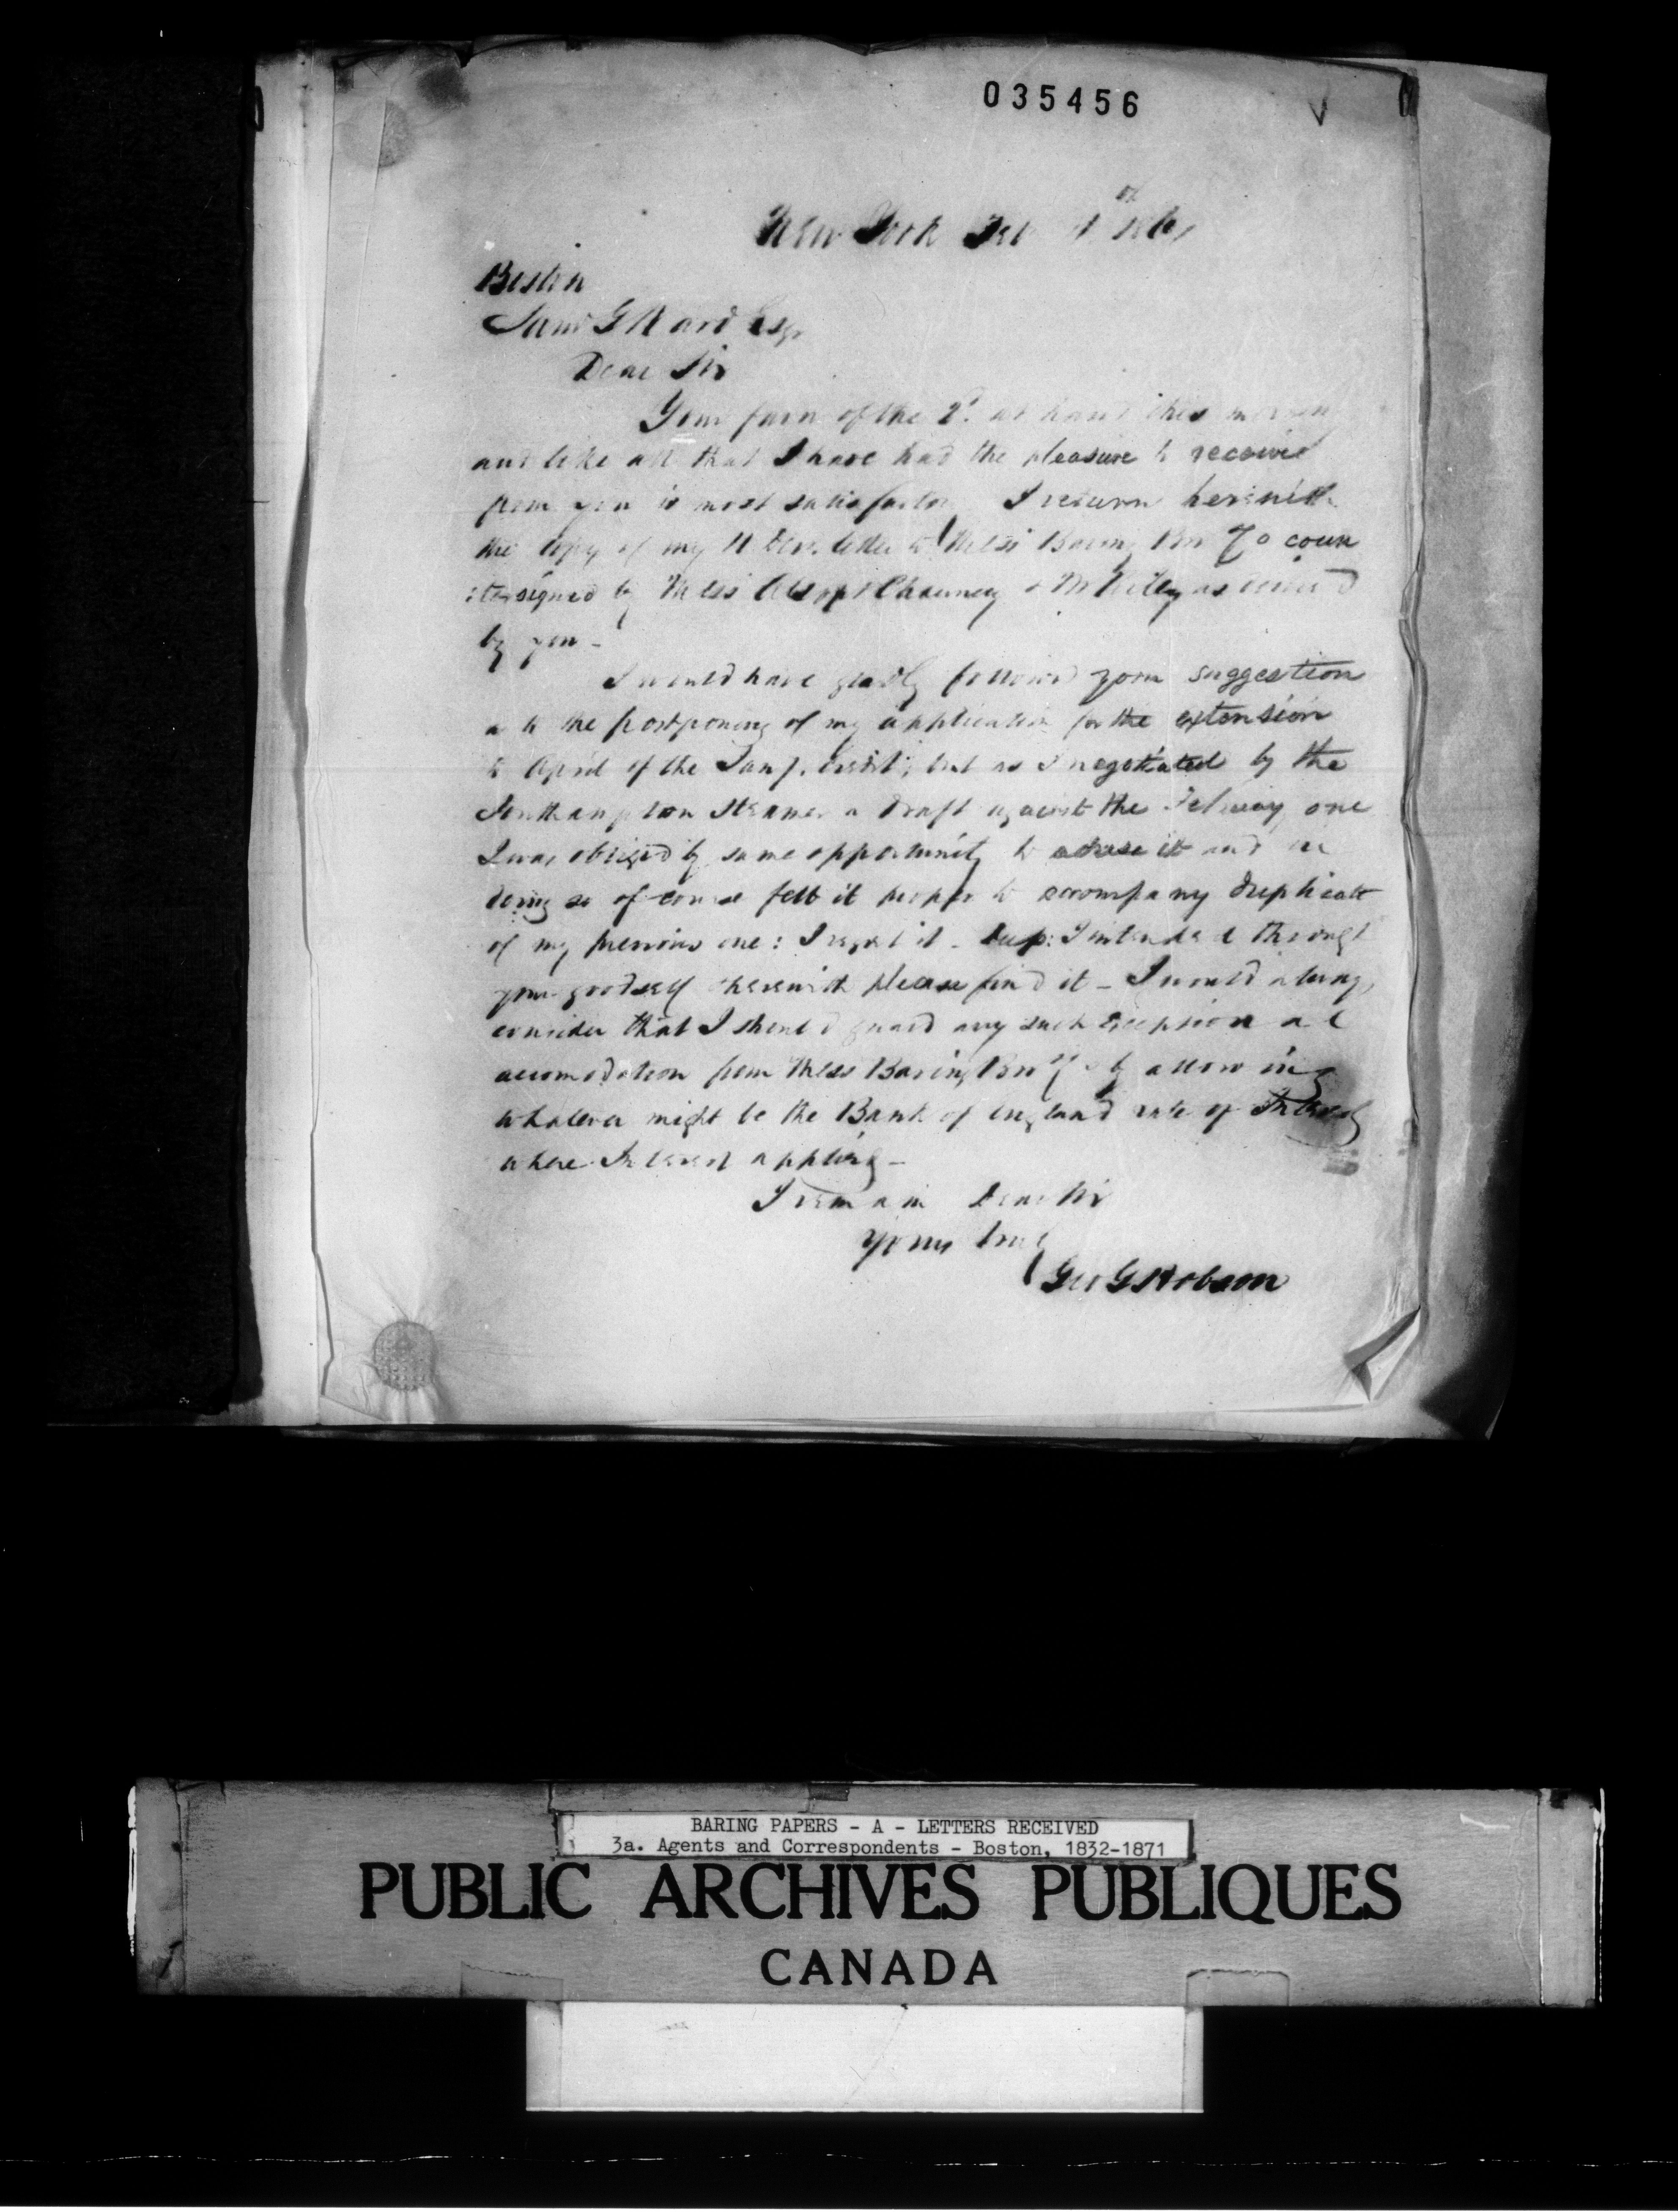 035456
New York Feb 4
Boston
Sam G Ward Esq
Dear Sir
Your favr of the 2d at hand this
and like all that I have had the pleasure to receive
from you is most satisfactory I return herewith
the copy of my letter to Messrs Baring Bro & Co coun
:tersigned by Messrs Alsop & Chauncey & Mr as
by you -
I would have gladly followed your suggestion
as to the postponing of my application for the extension
to April of the Jany. credit; but as I negotiated by the
Southampton Steamer a draft against the one
I was obliged by same opportunity to advise it and in
doing so of course felt it proper to accompany duplicate
of my previous one: I regret it - Dup: I intended through
your goodself herewith please find it - I would always
consider that I should guard any such
accomodation from Messrs Baring Bro & Co by allowing
whatever might be the Bank of England rate of Interest
where Interest applies -
I remain Dear Sir
Yours truly
Geo G Hobson
BARING PAPERS - A - LETTERS RECEIVED
3a. Agents and Correspondents - Boston, 1832-1871
PUBLIC ARCHIVES PUBLIQUES
CANADA